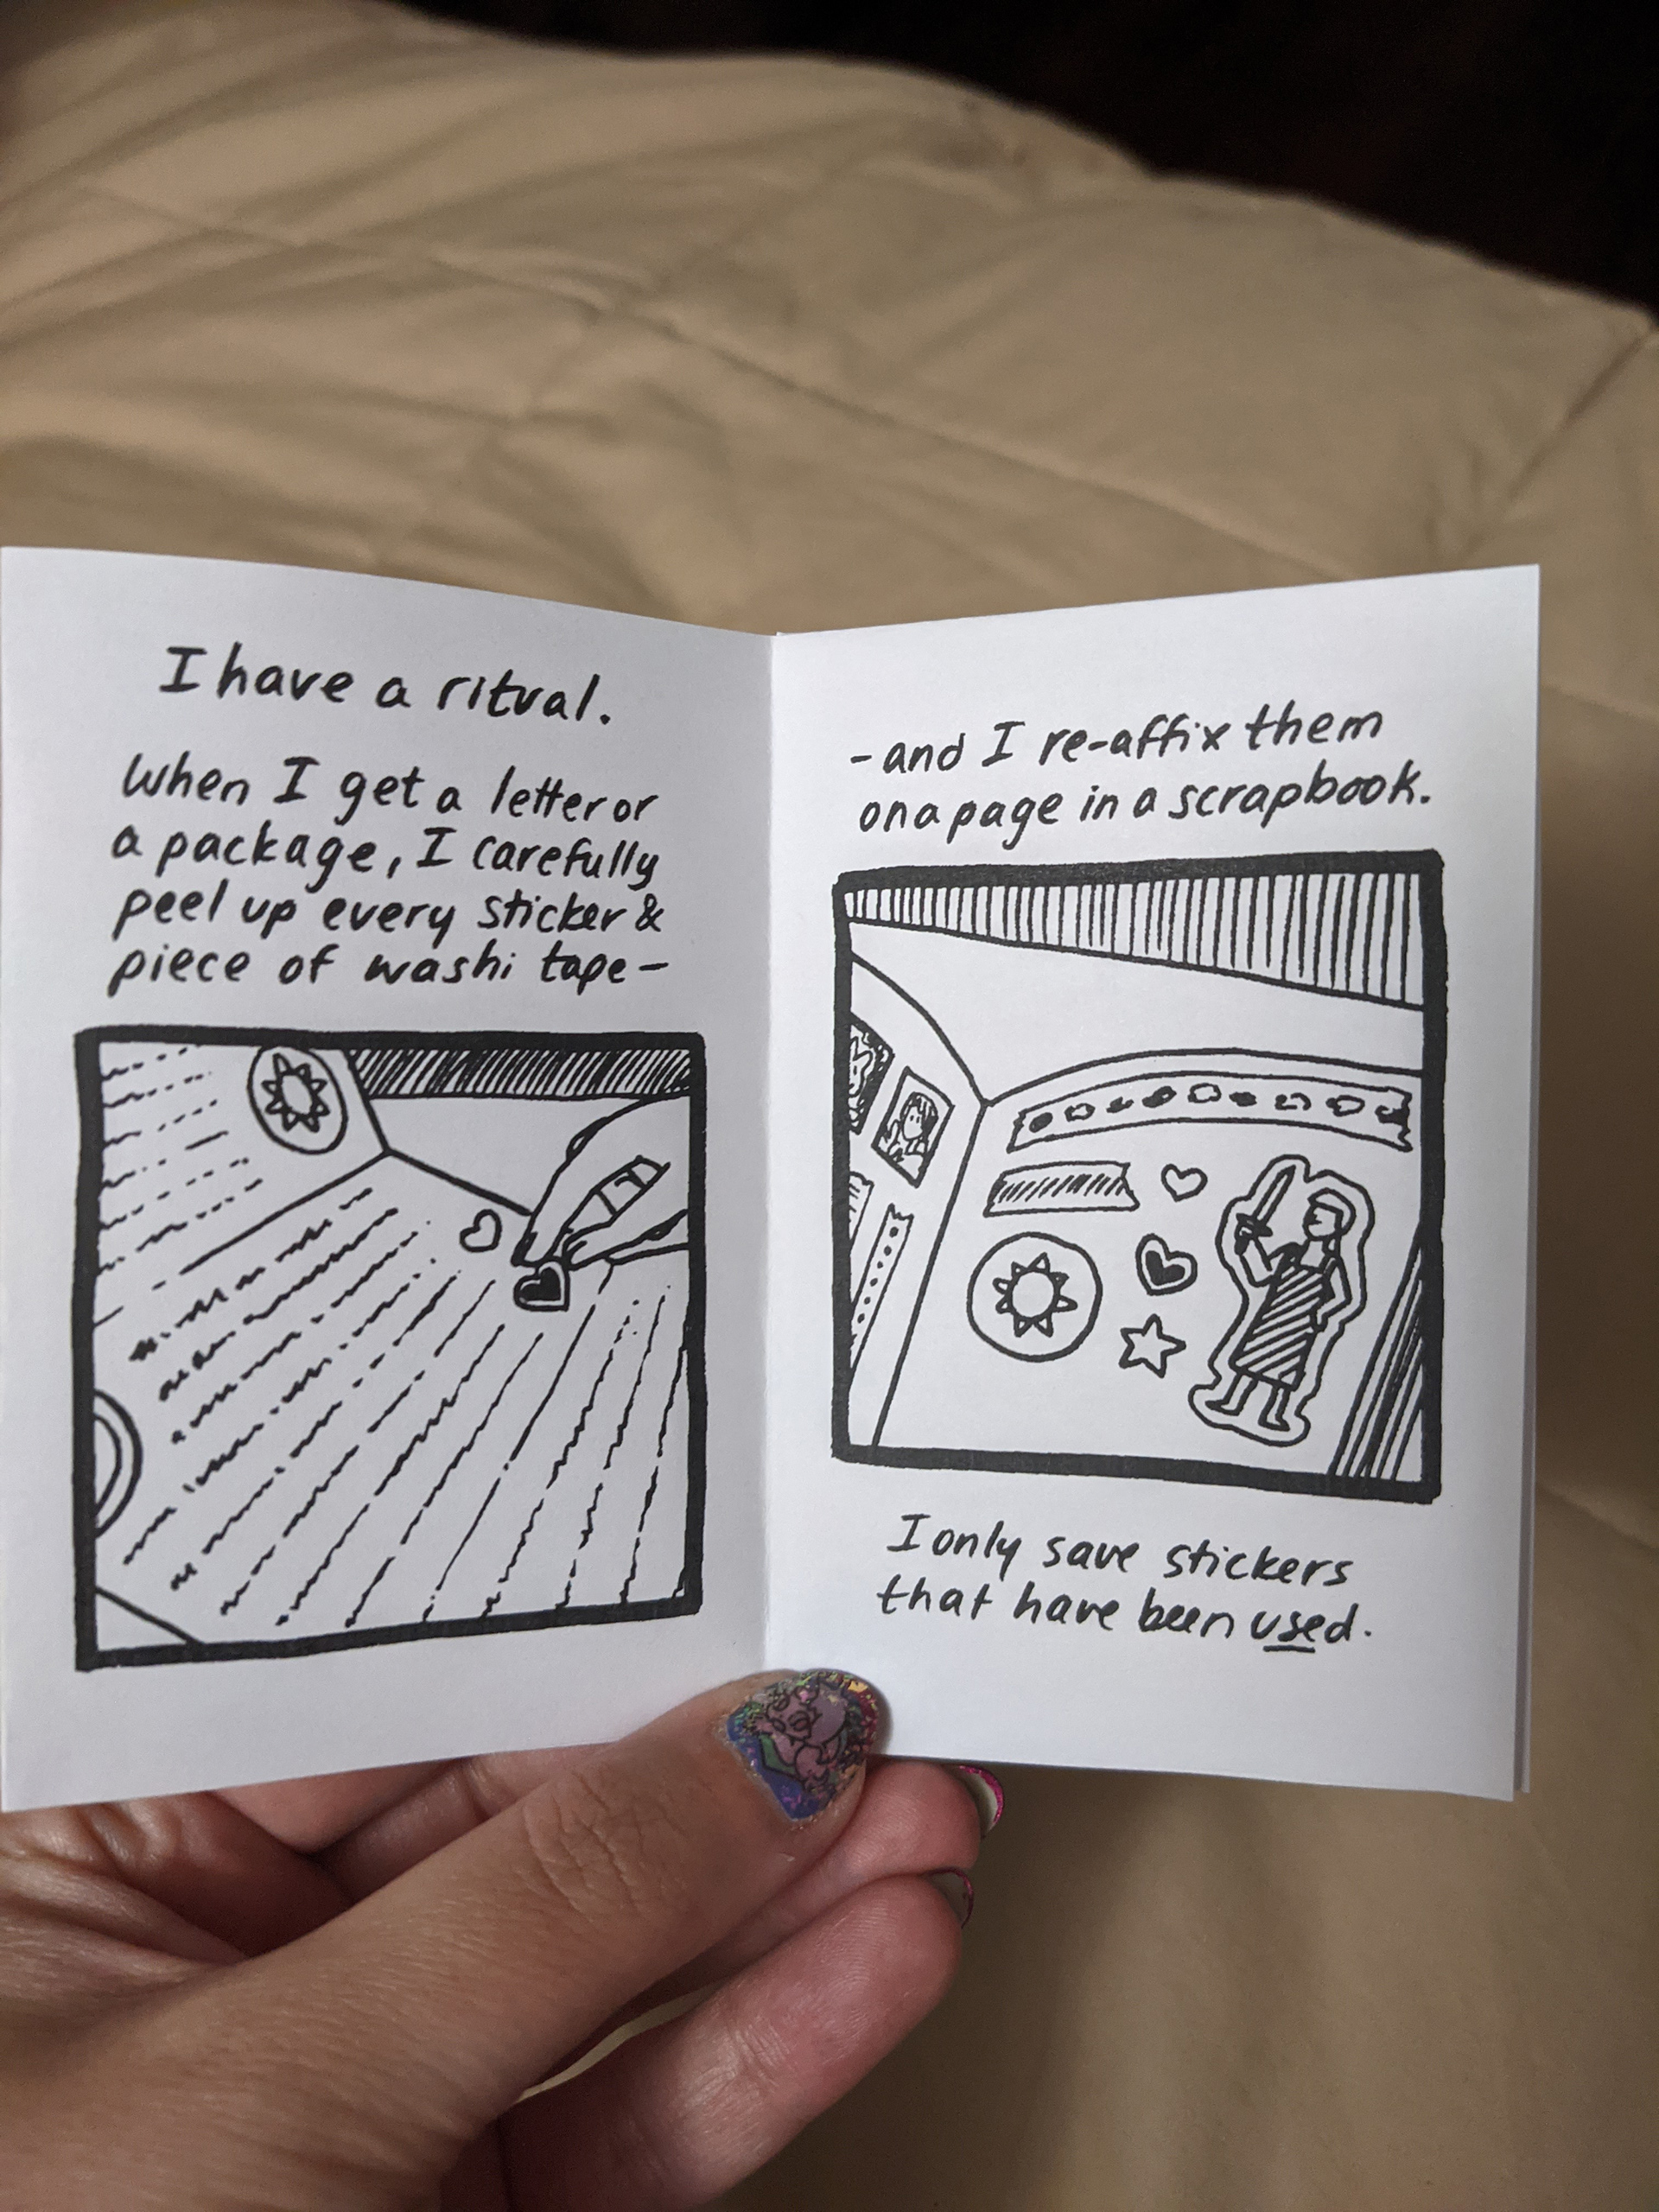 I have a ritual.
When I get a letter or
a package, I carefully
peel up every sticker &
piece of washi tape-
-and I re-affix them
on a page in a scrapbook.
I only save stickers
that have been used.